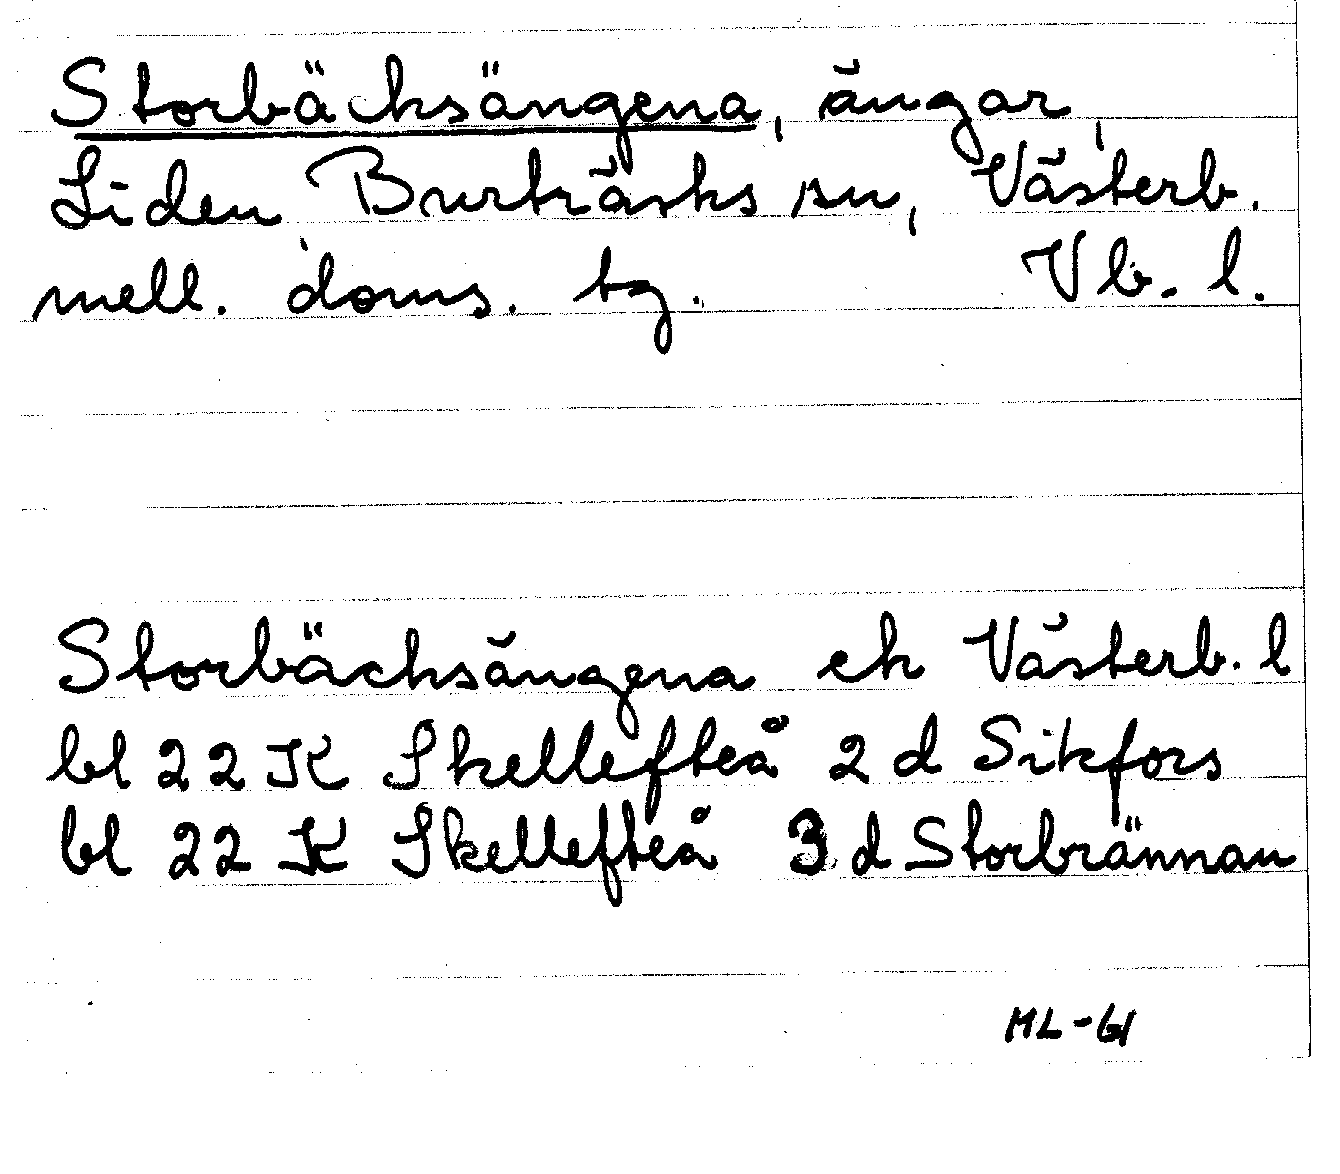 Storbäcksängena, ängar,
Liden, Burträsks sn, Västerb.
mell. doms. tg. Vb. l.
Storbäcksängena ek Västerb. l
bl 22 K Skellefteå 2 d Sikfors
bl 22 K Skellefteå 3 d Storbrännan
ML-61